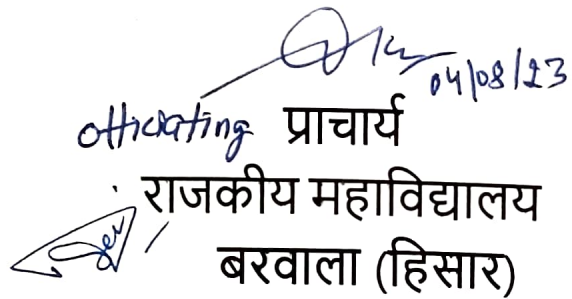 04/08/23
officiating प्राचार्य
राजकीय महाविद्यालय
बरवाला (हिसार)